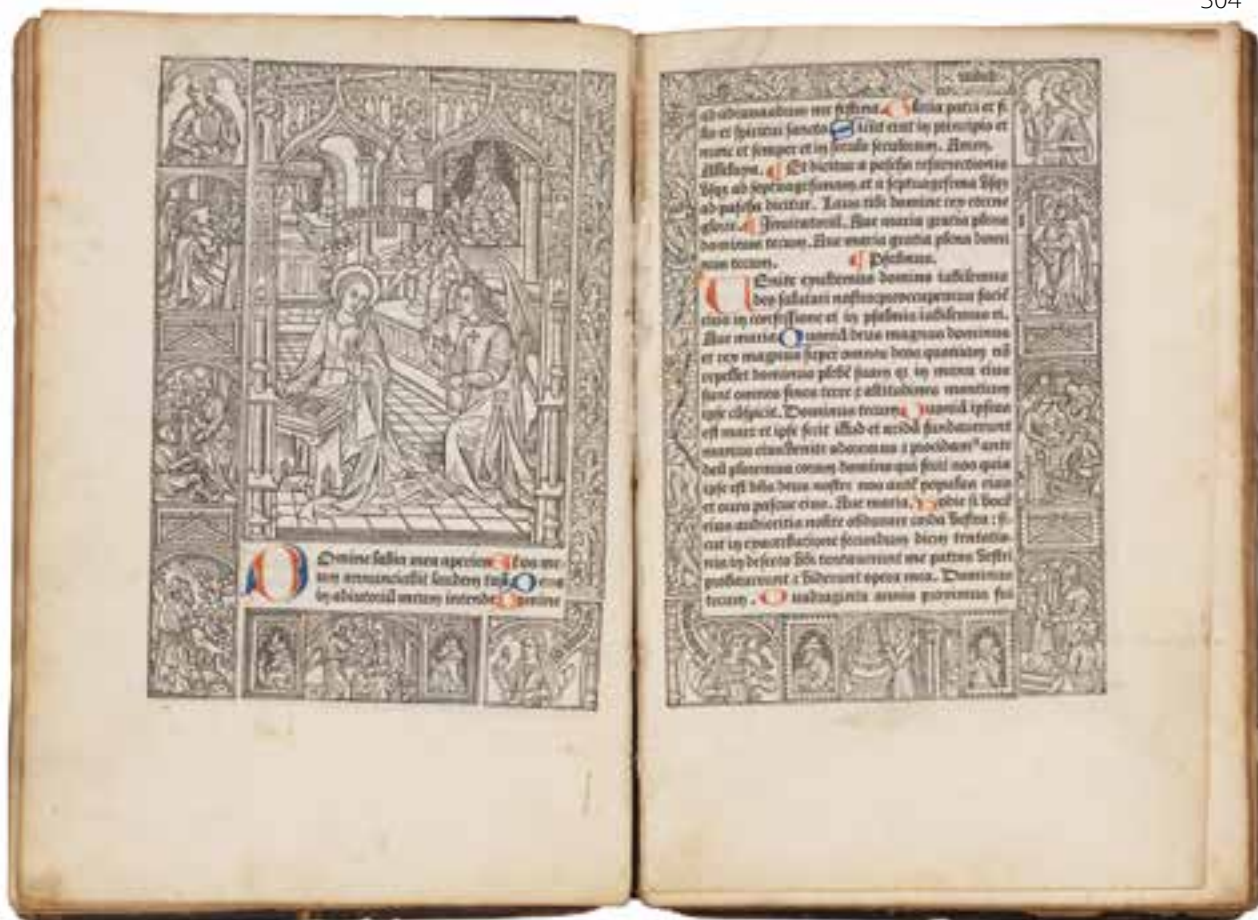 304
Omine labia mea aperies Et os me-
um annunciabit laudem tuā Deus
in adiutoriū meum intende Domine
ad adiuvandum me festina. Gloria patri et fi-
lio et spiritui sancto Sicut erat in principio et
nunc et semper et in secula seculorum. Amen.
Alleluya. ¶ Et dicitur a pascha resurrectionis
vsqz ad septuagesimam et a septuagesima vsqz
ad pascha dicitur. Laus tibi domine rex eterne
glorie. ¶ Invitatoriū. Aue maria gratia plena
dominus tecum. Aue maria gratia plena domi
nus tecum. ¶ Psalmus.
VEnite exultemus domino iubilemus
deo salutari nostro: preoccupemus faciē
eius in confessione et in psalmis iubilemus ei.
Aue maria Quoniā deus magnus dominus
et rex magnus super omnes deos quoniam nō
repellet dominus plebē suam qz in manu eius
sunt omnes fines terre et altitudines montium
ipse cōspicit. Dominus tecum Quoniā ipsius
est mare et ipse fecit illud et aridā fundauerunt
manus eius venite adoremus et procidam9 ante
deū ploremus coram domino qui fecit nos quia
ipse est dn̄s deus noster nos autē populus eius
et oues pascue eius. Aue maria. Hodie si vocē
eius audieritis nolite obdurare corda vestra: si-
cut in exacerbatione secundum diem tentatio-
nis in deserto vbi tentauerunt me patres vestri
probauerunt et viderunt opera mea. Dominus
tecum. Quadraginta annis proximus fui